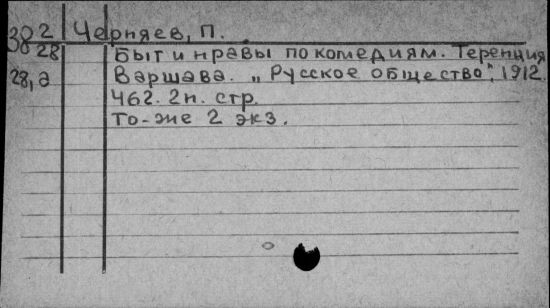 382 Черняев, П.
28 Быт и нравы по комедиям. Теренция
28, а Варшава. „Русское общество", 1912.
462. 2н. стр.
То-же 2 экз.